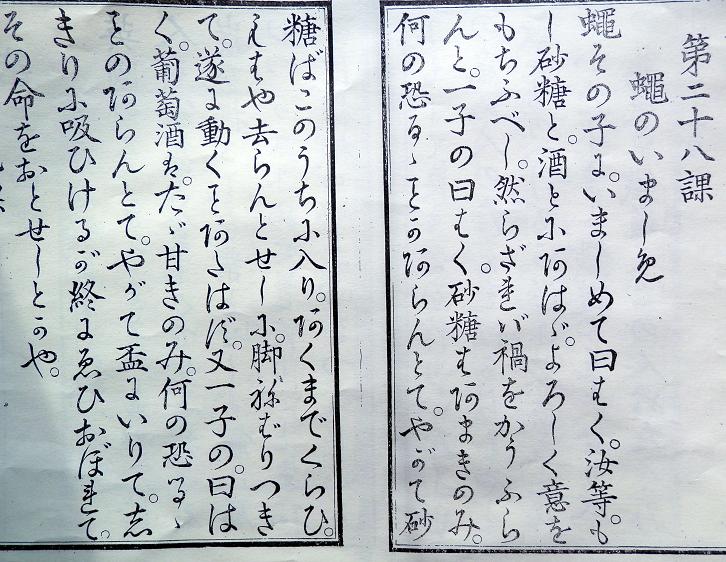 第二十八課
蠅のいましめ
蠅その子に。いましめて曰はく。汝等。も
し砂糖と。酒とにあはゞ。よろしく意を
もちふべし。然らざれバ禍をかうふら
んと。一子の曰はく。砂糖はあまきのみ。
何の恐るゝことかあらんとて。やがて砂
糖ばこのうちに入り。あくまでくらひ。
もはや去らんとせしに。脚ねばりつき
て。遂に動くことあたはず。又一子の。曰は
く。葡萄酒は。たゞ甘きのみ。何の恐るゝ
ことのあらんとて。やがて盃にいりて。し
きりに吸ひけるが終にゑひおぼれて。
その命をおとせしとかや。